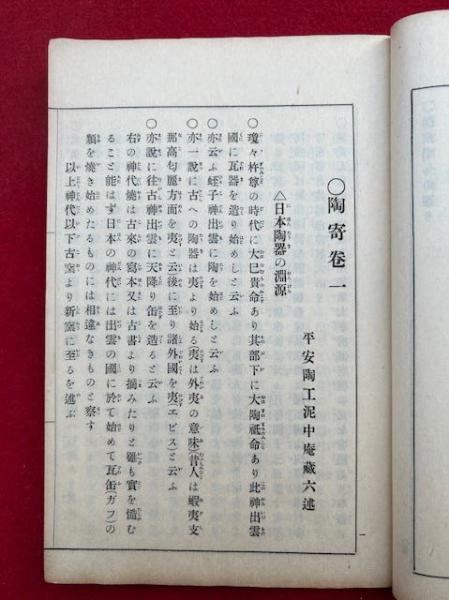 〇陶寄卷一
平安陶工泥中庵藏六述
△日本陶器の淵源
〇瓊々杵尊の時代に大巳貴命あり其部下に大陶祇命あり此神出雲
國に瓦器を造り始めしと云ふ
〇亦云ふ蛭子神出雲に陶を始めしと云ふ
〇亦一說に古への陶器は夷より始る(夷は外夷の意味)昔人は蝦夷支
那高勾麗方面を夷と云後に至り諸外國を夷(エビス)と云ふ
〇亦說に往古神出雲に天降り缶を造ると云ふ
右の神代燒は古來の寫本又は古書より摘みたりと雖も實を慥む
ること能はず日本の神代には出雲の國に於て始めて瓦缶(ガフ)の
類を燒き始めたるものには相違なきものと察す
以上神代以下古窯より新窯に至るを述ぶ
一